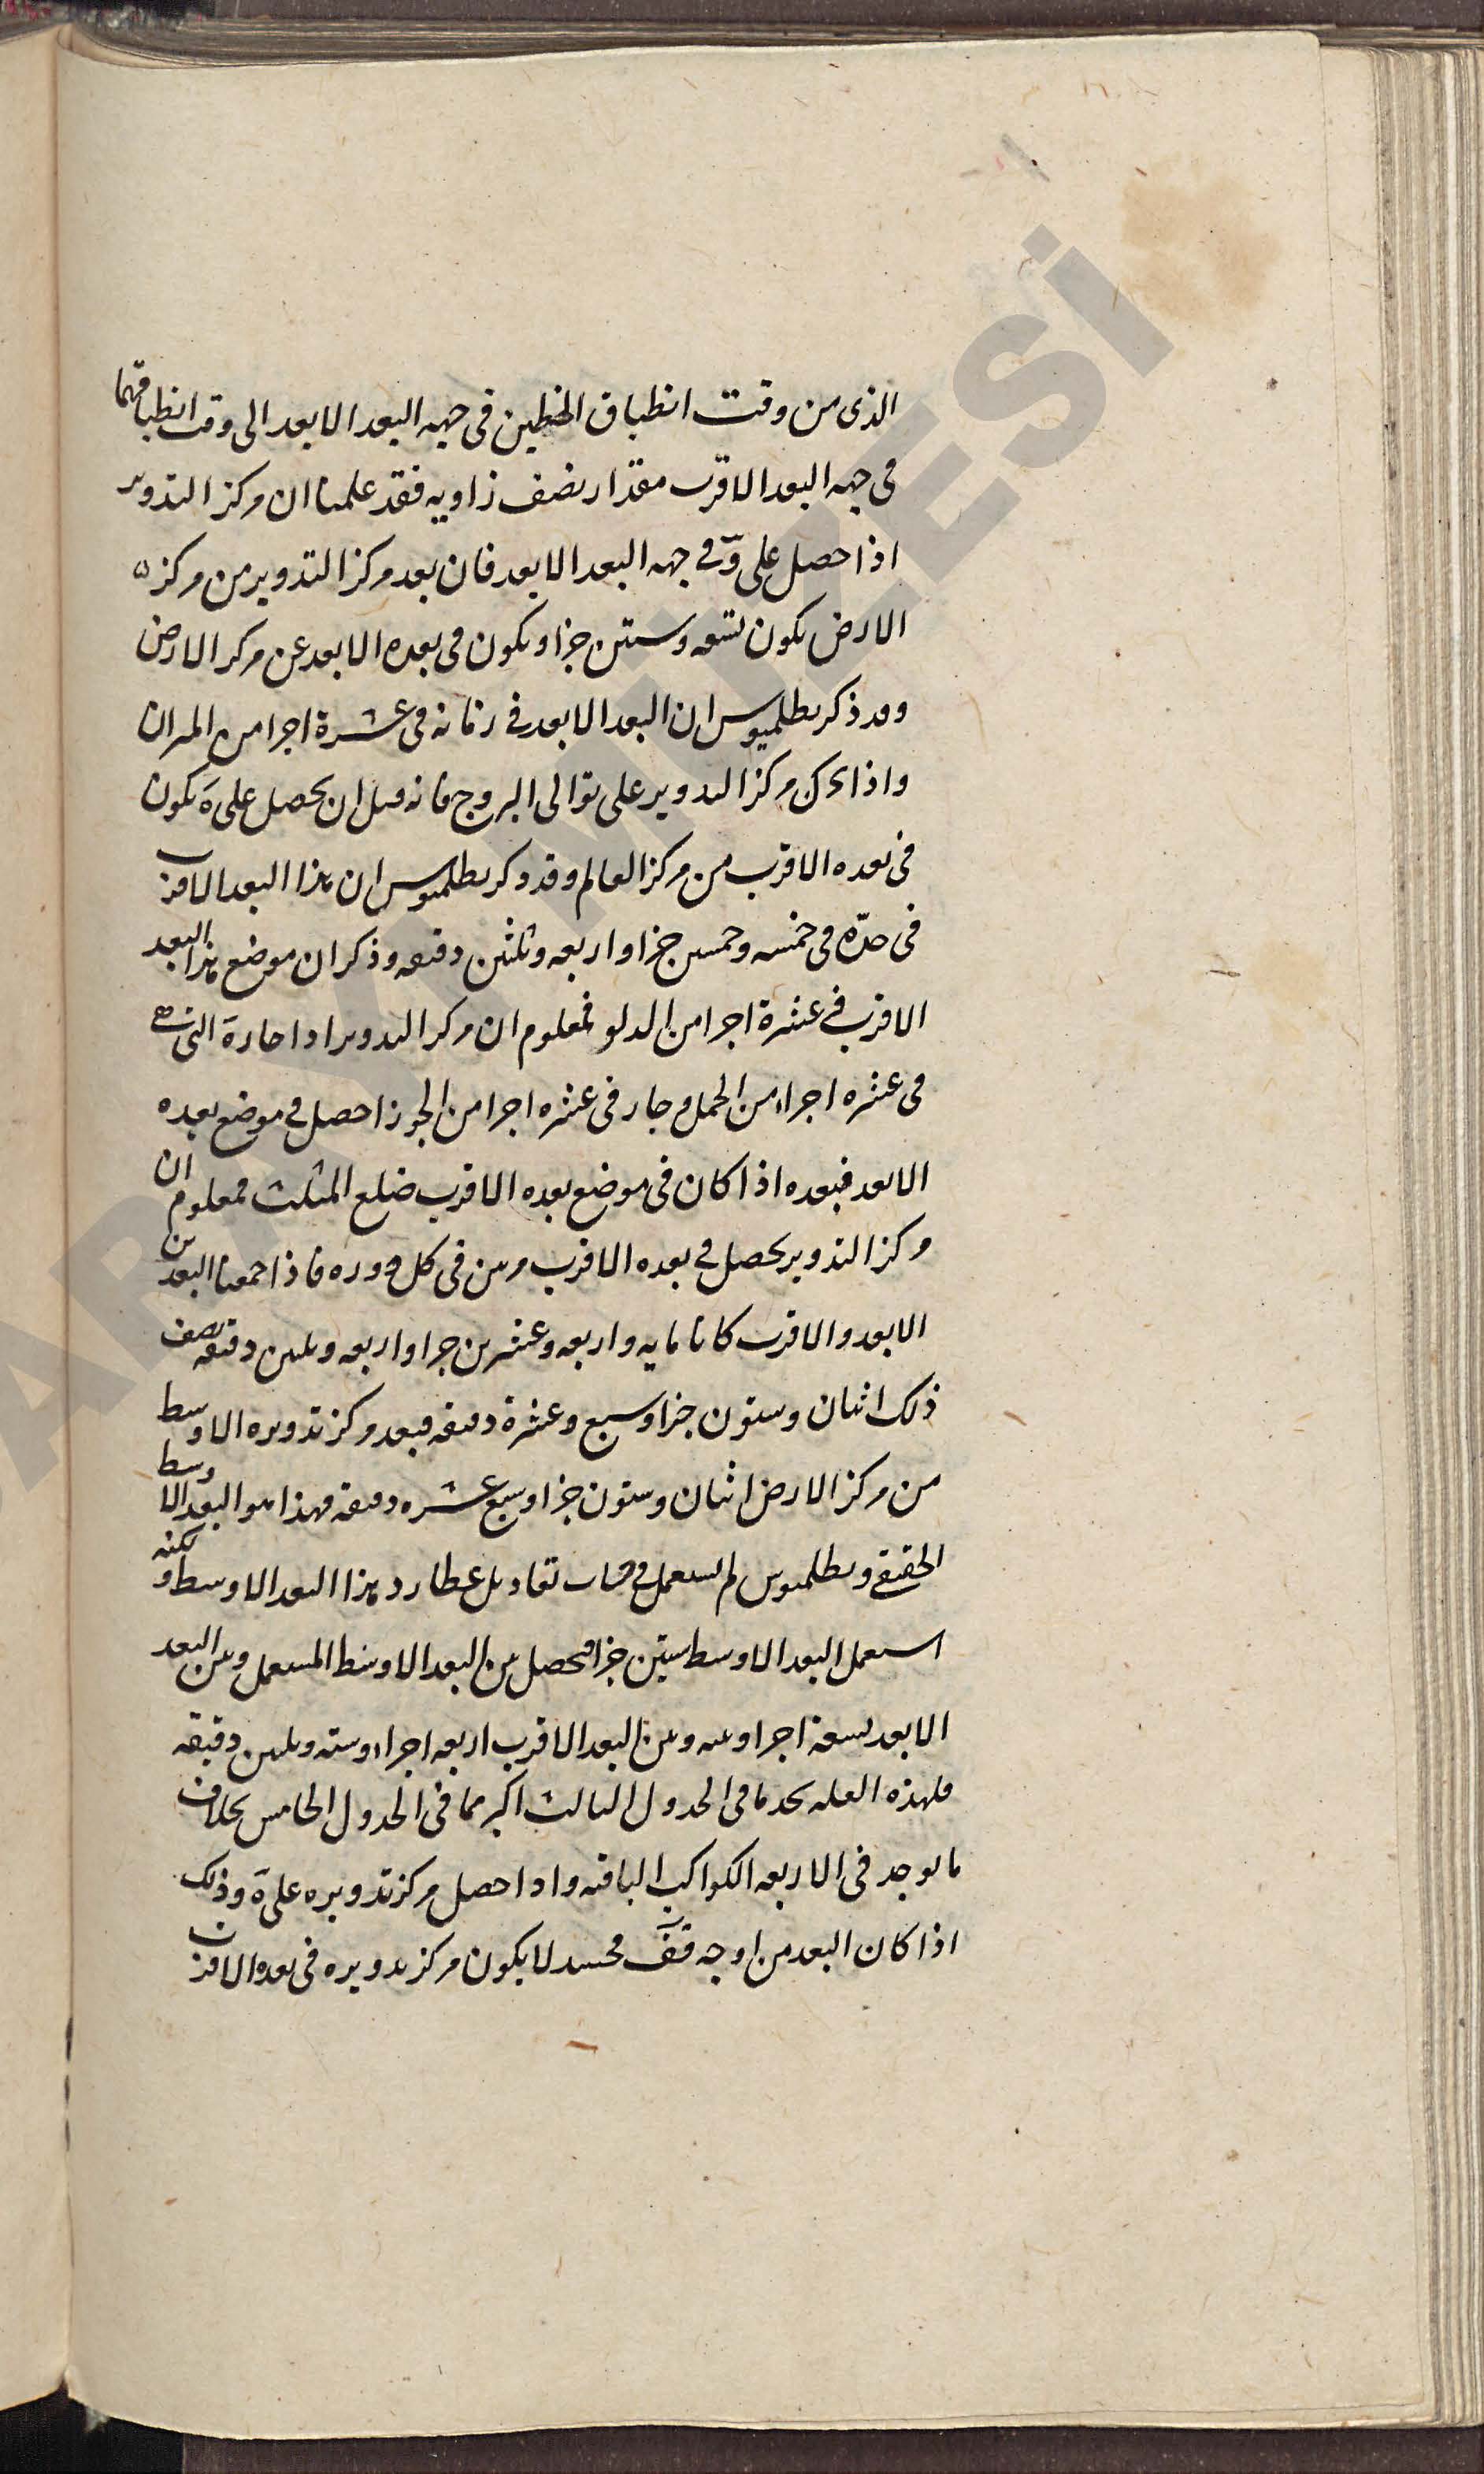 الذى من وقت انطباق الخطين فى جهه البعد الابعد الى وقت انطباقهما
فى جهه البعد الاقرب مقدار نصف زاويه فقد علمنا ان مركز التدوير
اذا حصل على و فى جهه البعد الابعد فان بعد مركز التدوير من مركز
الارض يكون تسعه وستين جزا ويكون فى بعده الابعد عن مركز الارض
وقد ذكر بطلميوس ان البعد الابعد فى زمانه فى عشرة اجزا من الميزان
واذا تحرك مركز التدوير على توالى البروج فانه قبل ان يحصل على ه يكون
فى بعده الاقرب من مركز العالم وقد ذكر بطلميوس ان هذا البعد الاقرب
فى خمسه وخمسين جزا واربعه وثلثين دقيقه وذكر ان موضع هذا البعد
الاقرب فى عشرة اجزا من الدلو فمعلوم ان مركز التدوير اذا التى هى
فى عشره اجزاء من الحمل وجاز فى عشره اجزا من الجوزا حصل فى موضع بعده
الابعد فبعده اذا كان فى موضع بعده الاقرب ضلع المثلث فمعلوم ان
مركز التدوير يحصل فى بعده الاقرب مرتين فى كل دوره فاذا جمعنا البعدين
الابعد والاقرب كانا مايه واربعه وعشرين جزا واربعه وثلثين دقيقه نصف
ذلك اثنان وستون جزا وسبع وعشرة دقيقه فبعد مركز تدويره الاوسط
من مركز الارض اثنان وستون جزا وسبع عشره دقيقه فهذا هو البعد الاوسط
الحقيقى وبطلميوس لم يستعمل فى حساب تعاديل عطارد هذا البعد الاوسط ولكنه
استعمل البعد الاوسط ستين جزا فحصل بين البعد الاوسط المستعمل وبين البعد
الابعد تسعة اجزا وبينه وبين البعد الاقرب اربعه اجزاء وسته وعشرين دقيقه
فلهذه العله نجد ما فى الجدول الثالث اكبر مما فى الجدول الخامس بخلاف
ما يوجد فى الاربعه الكواكب الباقيه واذا حصل مركز تدويره على ه وذلك
اذا كان البعد من اوجه قف فحينئذ لا يكون مركز تدويره فى بعده الاقرب
SARAYI MÜZESİ